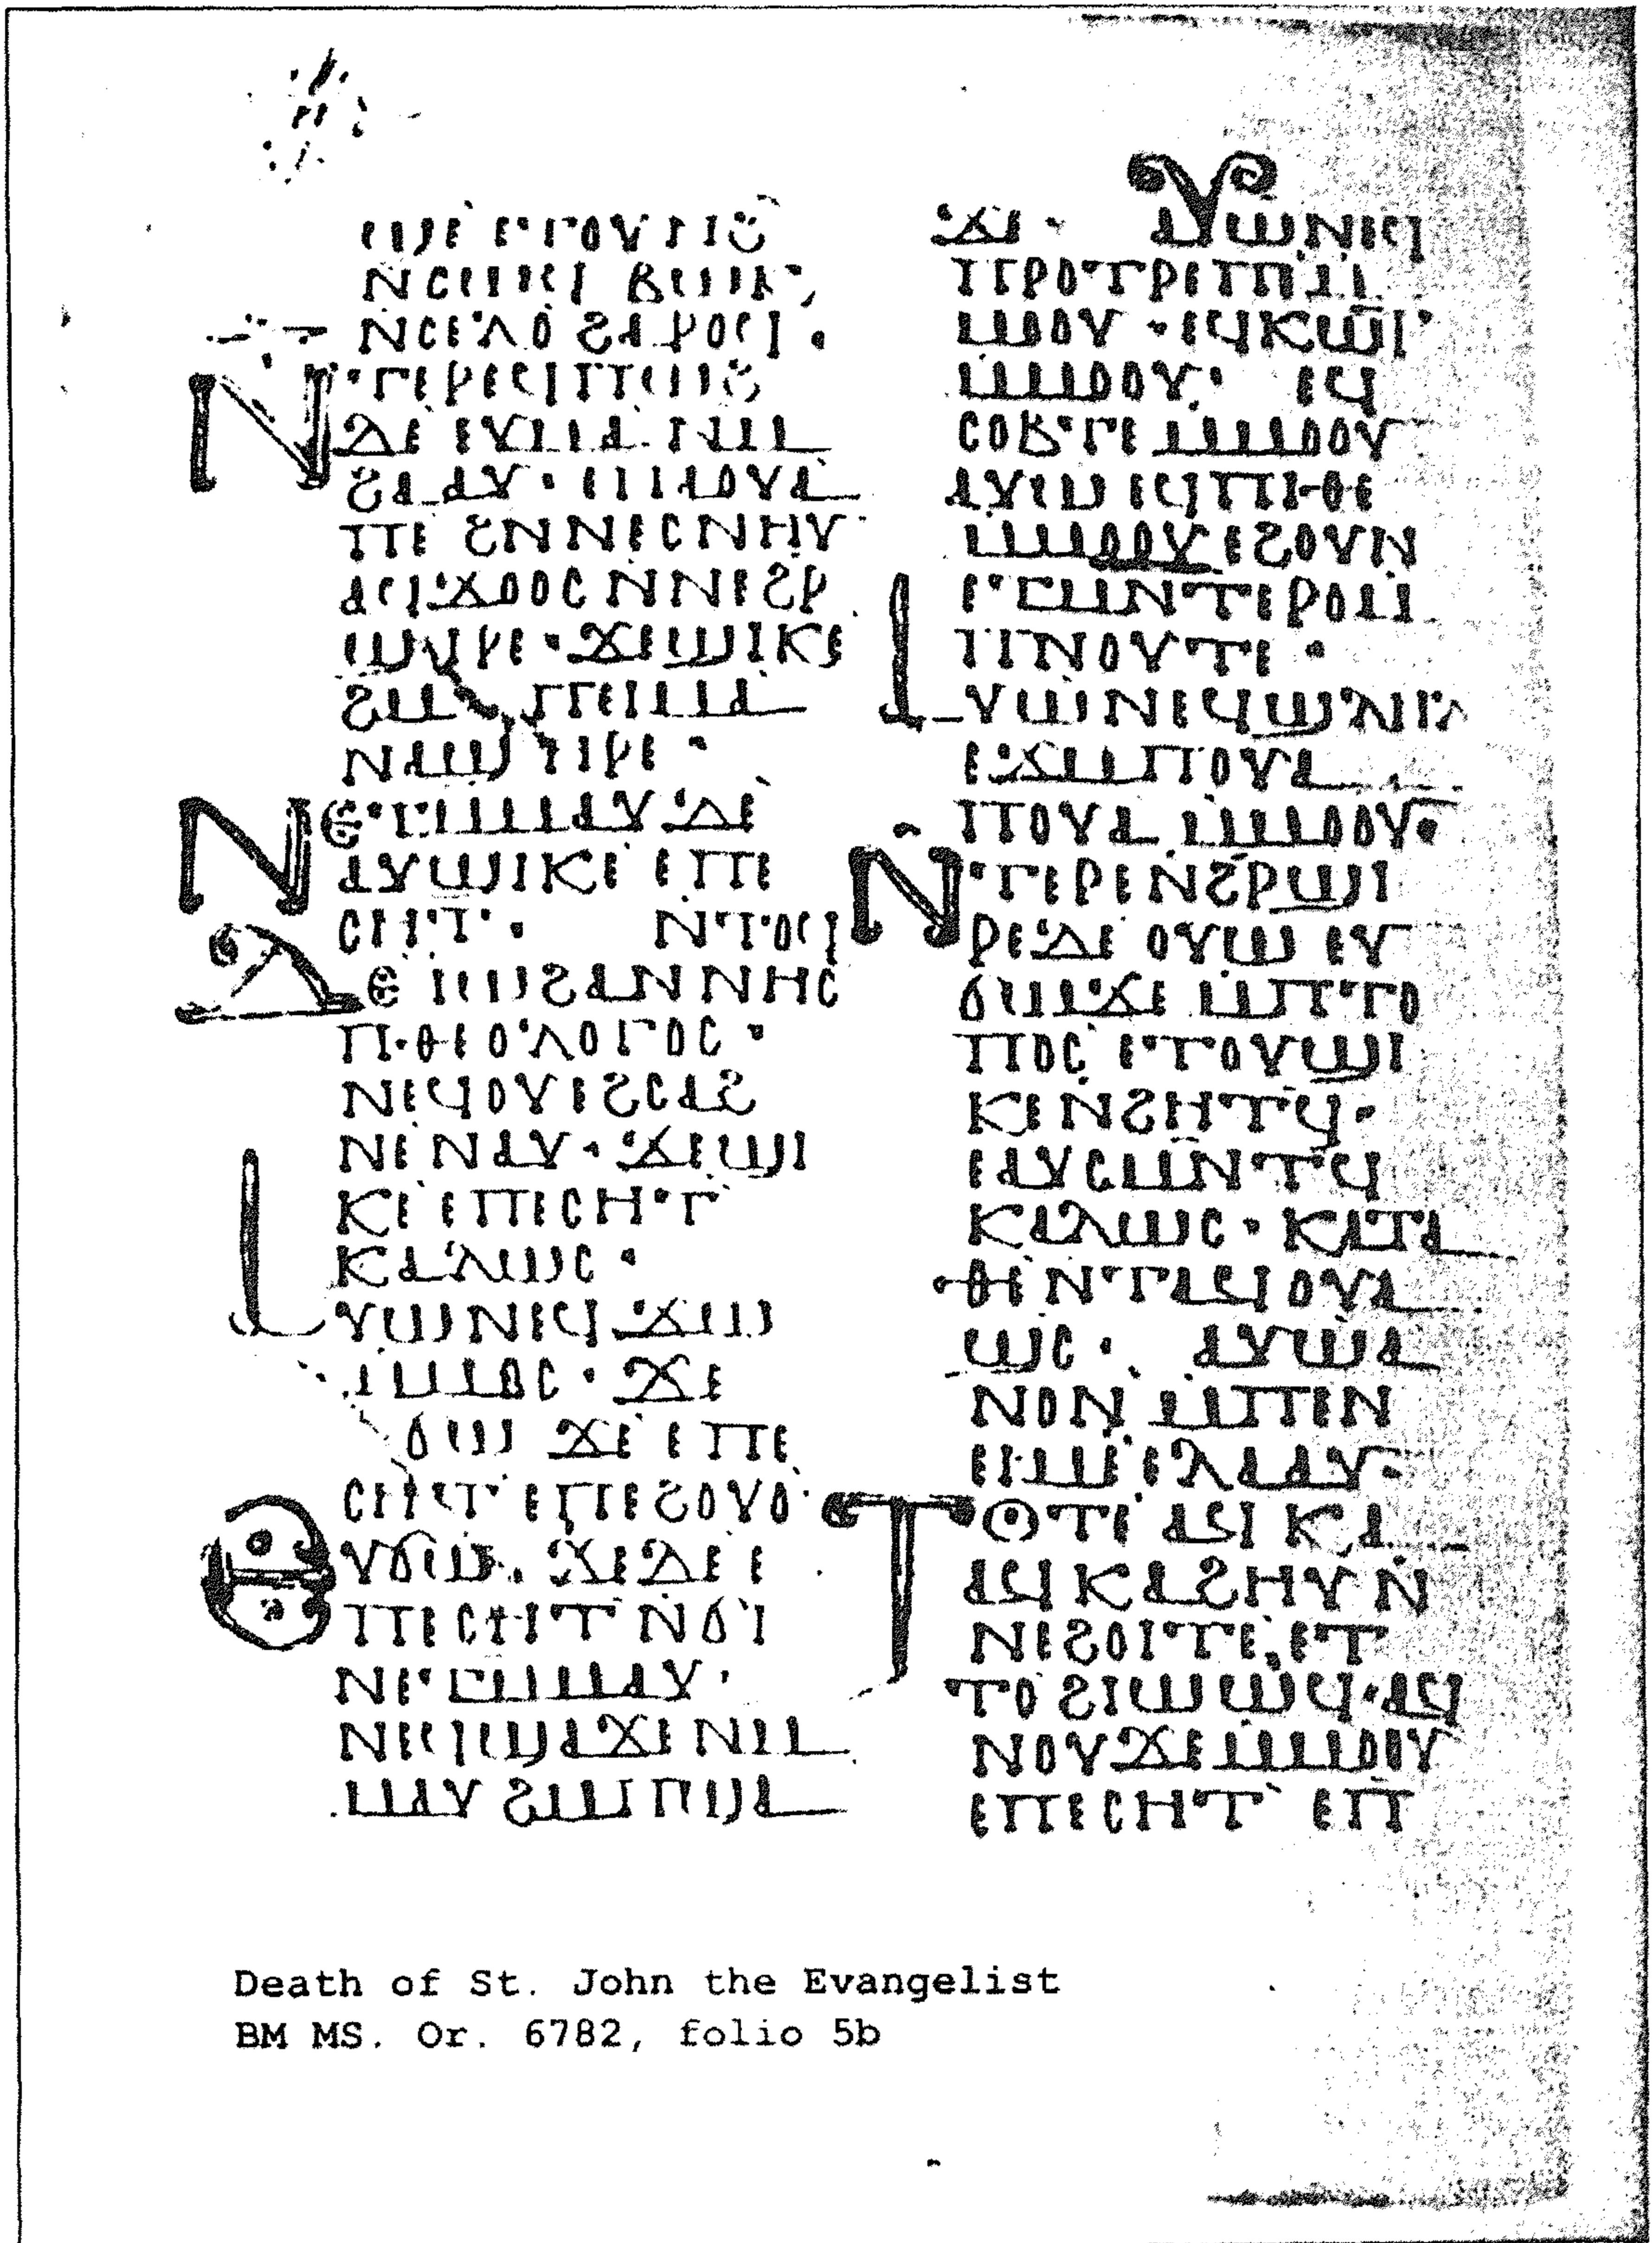 ⲛⲥⲉⲗⲟ ϩⲁⲣⲟϥ·
ⲛⲧⲉⲣⲉϥⲡⲱϩ
ⲇⲉ ⲉⲩⲙⲁ ⲛⲧⲙ
ϩⲁⲁⲩ·
ⲡⲉ ϩⲛⲛⲉⲥⲛⲏⲩ·
ⲁϥϫⲟⲟⲥ ⲛⲛⲉϩⲣ
ϣⲓⲣⲉ·ϫⲉϣⲓⲕⲉ
ϩⲙ ⲡⲉⲓⲙⲁ
ⲛⲁϣⲏⲣⲉ·
ⲛⲉⲧⲙⲙⲁⲩ ⲇⲉ
ⲁⲩϣⲓⲕⲉ ⲉⲡⲉ
ⲥⲏⲧ· ⲛⲧⲟϥ
ⲇⲉ ⲓⲱϩⲁⲛⲛⲏⲥ
ⲡⲑⲉⲟⲗⲟⲅⲟⲥ·
ⲛⲉϥⲟⲩⲉϩⲥⲁϩ
ⲛⲉ ⲛⲁⲩ·ϫⲉϣⲓ
ⲕⲉ ⲉⲡⲉⲥⲏⲧ
ⲕⲁⲗⲱⲥ·
ⲁⲩⲱⲛⲉϥϫⲱ
ⲙⲙⲟⲥ·ϫⲉ
ϭⲱ ϫⲉ ⲉⲡⲉ
ⲥⲏⲧ ⲉⲡⲉϩⲟⲩⲟ·
ⲉⲩϭⲱϫⲉⲇⲉ ⲉ
ⲡⲉⲥⲏⲧ ⲛϭⲓ
ⲛⲉⲧⲙⲙⲁⲩ·
ⲛⲉϥϣⲁϫⲉ ⲛⲙ
ⲙⲁⲩ ϩⲙ ⲡϣⲁ
ϫⲉ· ⲁⲩⲱⲛⲉϥ
ⲡⲣⲟⲧⲣⲉⲡⲉ
ⲙⲙⲟⲟⲩ·ⲉϥⲕⲱⲧ
ⲙⲙⲟⲟⲩ· ⲉϥ
ⲥⲟⲃⲧⲉ ⲙⲙⲟⲟⲩ
ⲁⲩⲱ ⲉϥⲡⲓⲑⲉ
ⲙⲙⲟⲟⲩⲉϩⲟⲩⲛ
ⲉⲧⲙⲛⲧⲉⲣⲟⲙ
ⲡⲛⲟⲩⲧⲉ·
ⲁⲩⲱⲛⲉϥϣⲗⲏⲗ
ⲉϫⲙⲡⲟⲩⲁ
ⲡⲟⲩⲁ ⲙⲙⲟⲟⲩ·
ⲛⲧⲉⲣⲉⲛϩⲣϣⲓ
ⲣⲉⲇⲉ ⲟⲩⲱ ⲉⲩ
ϭⲱϫⲉ ⲙⲡⲧⲟ
ⲡⲟⲥ ⲉⲧⲟⲩϣⲓ
ⲕⲉⲛϩⲏⲧϥ·
ⲉⲁⲩⲥⲙⲛⲧϥ
ⲕⲁⲗⲱⲥ·ⲕⲁⲧⲁ
ⲑⲉⲛⲧⲁϥⲟⲩⲁ
ϣⲥ· ⲁⲩⲱⲁ
ⲛⲟⲛ ⲙⲡⲉⲛ
ⲉⲓⲙⲉⲉⲗⲁⲁⲩ·
ⲧⲟⲧⲉ ⲁϥⲕⲁ
ⲁϥ ⲕⲁϩⲏⲩ ⲛ
ⲛⲉϩⲟⲓⲧⲉ ⲉⲧ
ⲧⲟ ϩⲓⲱⲱϥ·ⲁϥ
ⲛⲟⲩϫⲉⲙⲙⲟⲟⲩ
ⲉⲡⲉⲥⲏⲧ ⲉⲡ
Death of St. John the Evangelist
BM MS. Or. 6782, folio 5b